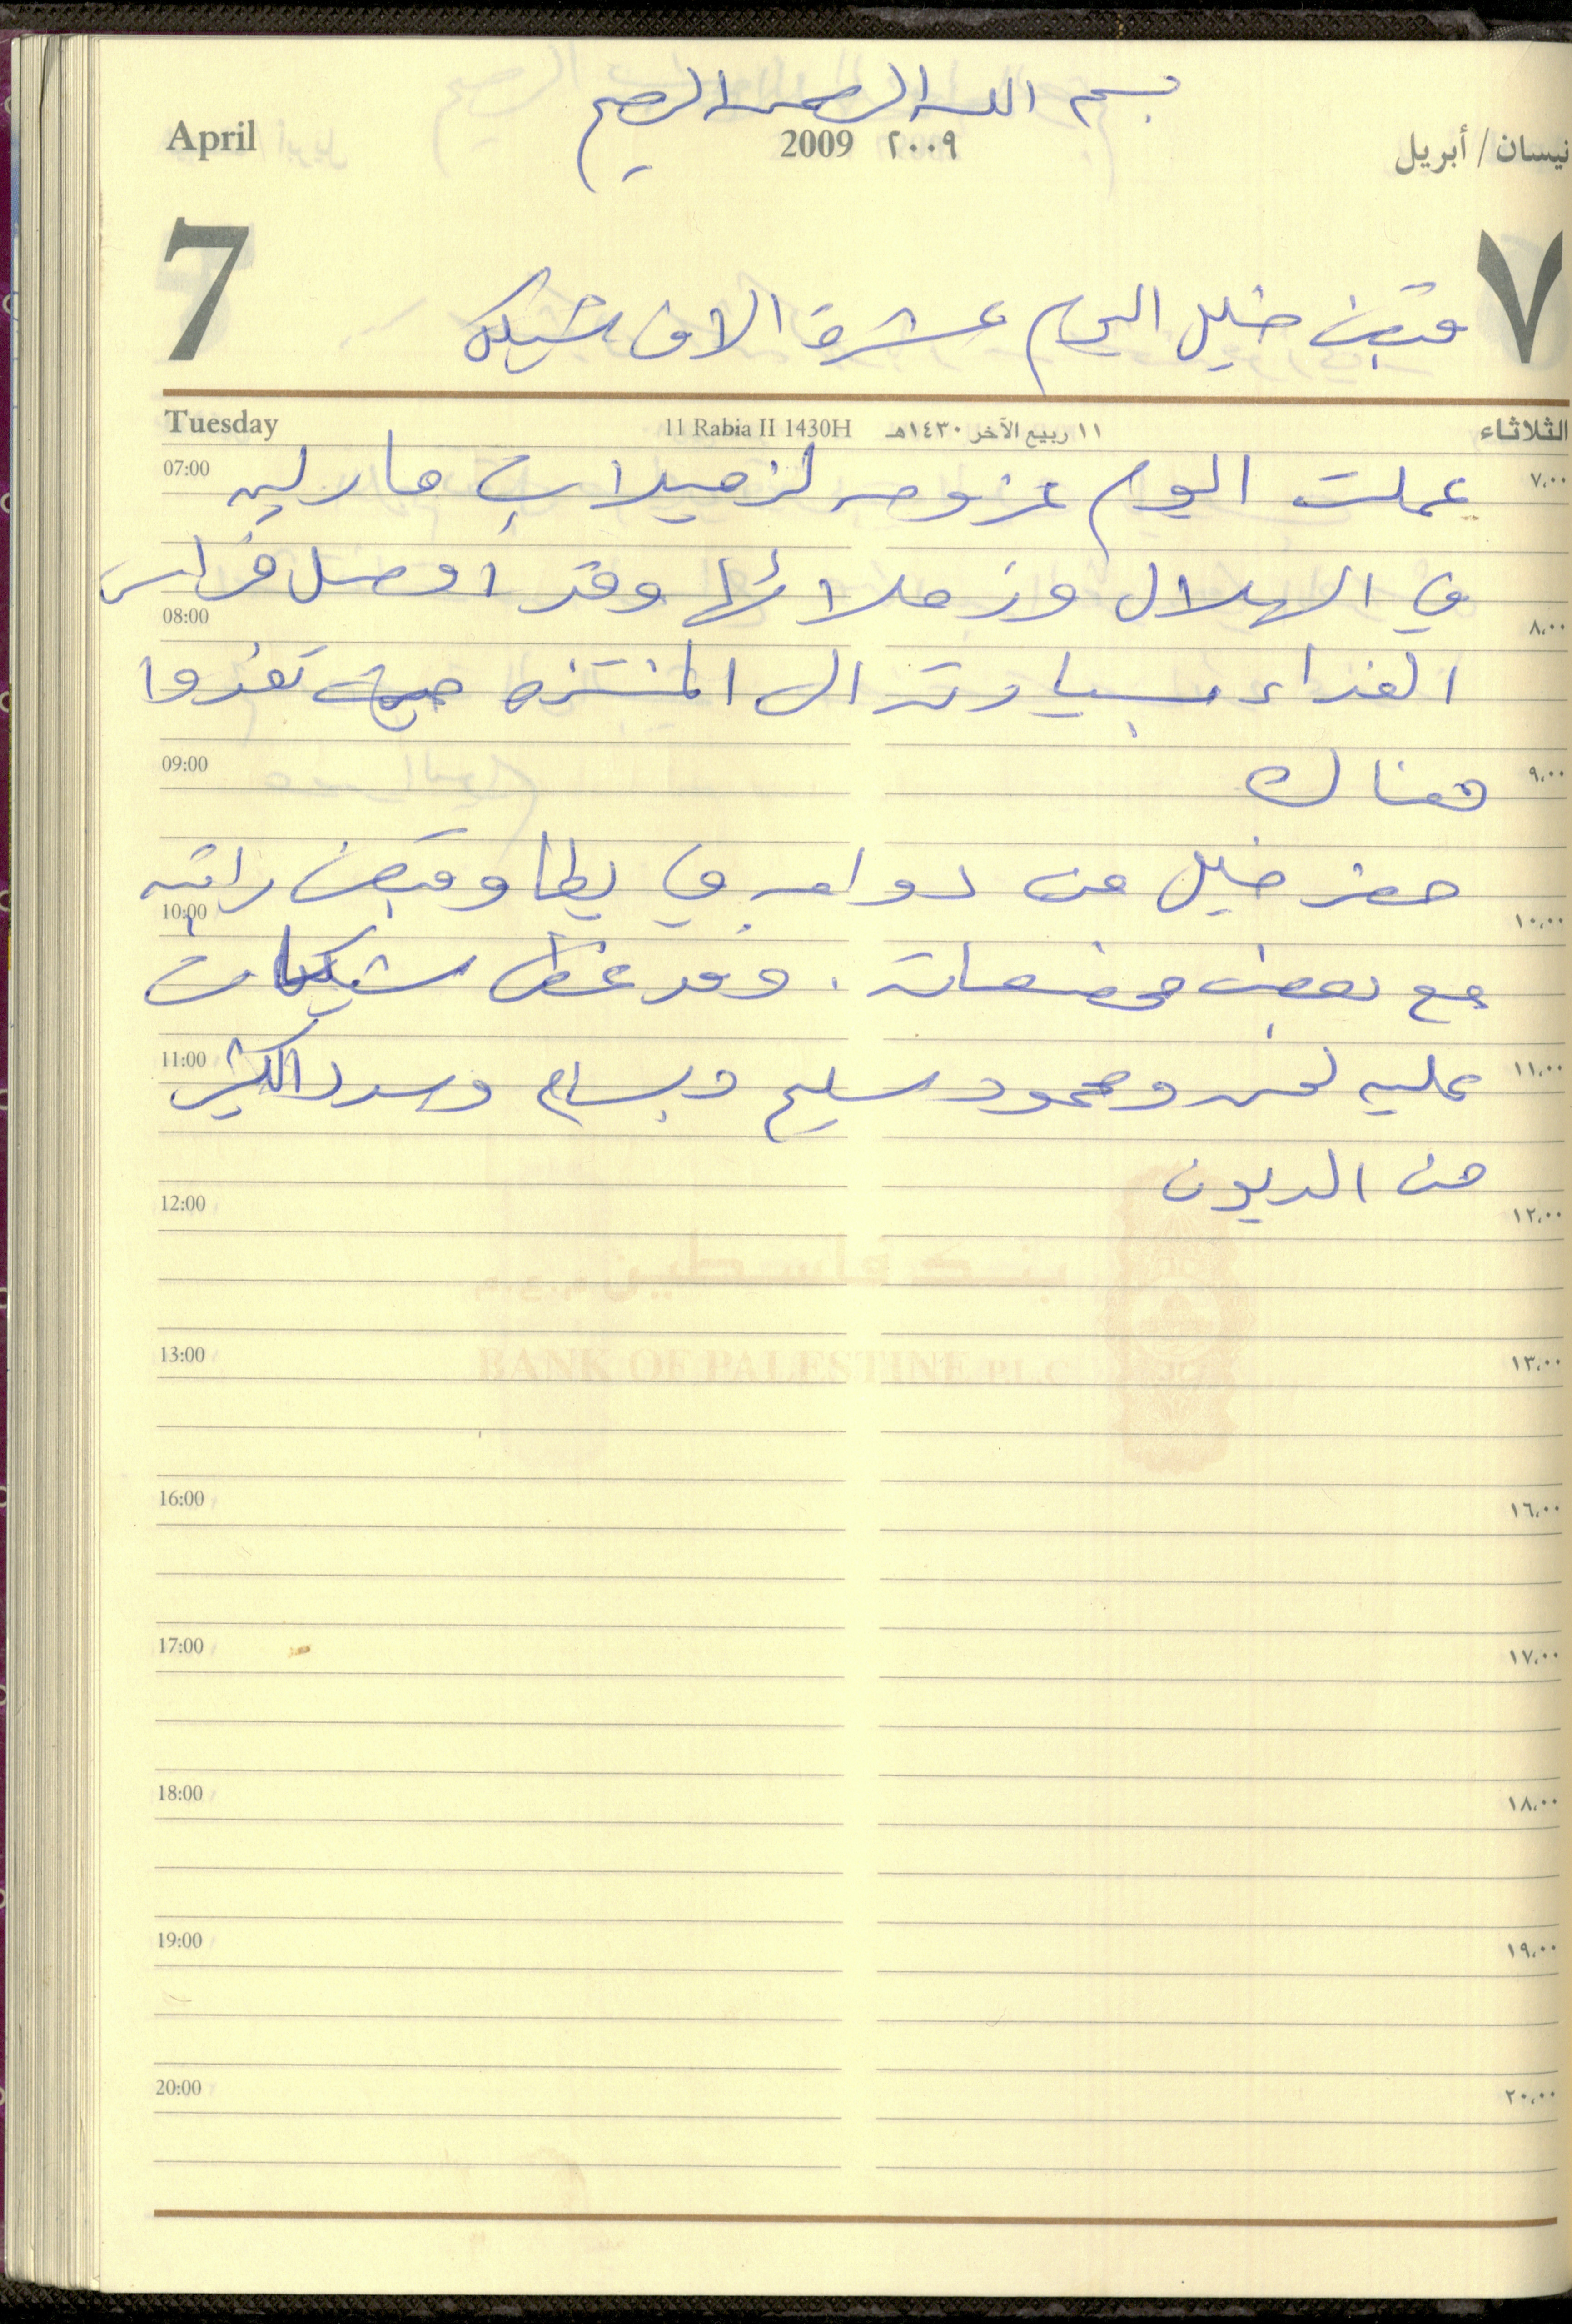 بسم الله الرحمن الرحيم
April 2009 ٢٠٠٩ نيسان / أبريل
7 ٧
قبض خليل اليوم عشرة الاف شيكل
Tuesday 11 Rabia II 1430H ١١ ربيع الآخر ١٤٣٠هـ الثلاثاء
07:00 ٧،٠٠
عملت اليوم عزومه لزميلات مارلين
في الهلال وزملائها وقد اوصل فراس
08:00 ٨،٠٠
الغداء بسيارته الى المنتزه حيث تغدوا
09:00 ٩،٠٠
هناك
حضر خليل من دوامه في يطا وقبض راتبه
10:00 ١٠،٠٠
مع بعض مخصصاته . وقد غطى شيكات
11:00 ١١،٠٠
عليه ومحمود سليم وبسام وسدد الكثير
من الديون
12:00 ١٢،٠٠
بنك فلسطين م.ع.م
BANK OF PALESTINE P.L.C
13:00 ١٣،٠٠
16:00 ١٦،٠٠
17:00 ١٧،٠٠
18:00 ١٨،٠٠
19:00 ١٩،٠٠
20:00 ٢٠،٠٠